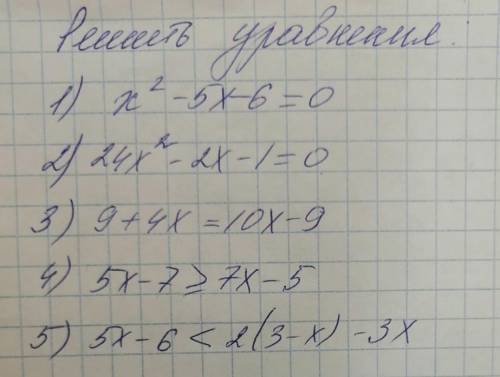 Решить уравнения:
1) x² - 5x - 6 = 0
2) 24x² - 2x - 1 = 0
3) 9 + 4x = 10x - 9
4) 5x - 7 ≥ 7x - 5
5) 5x - 6 < 2(3 - x) - 3x